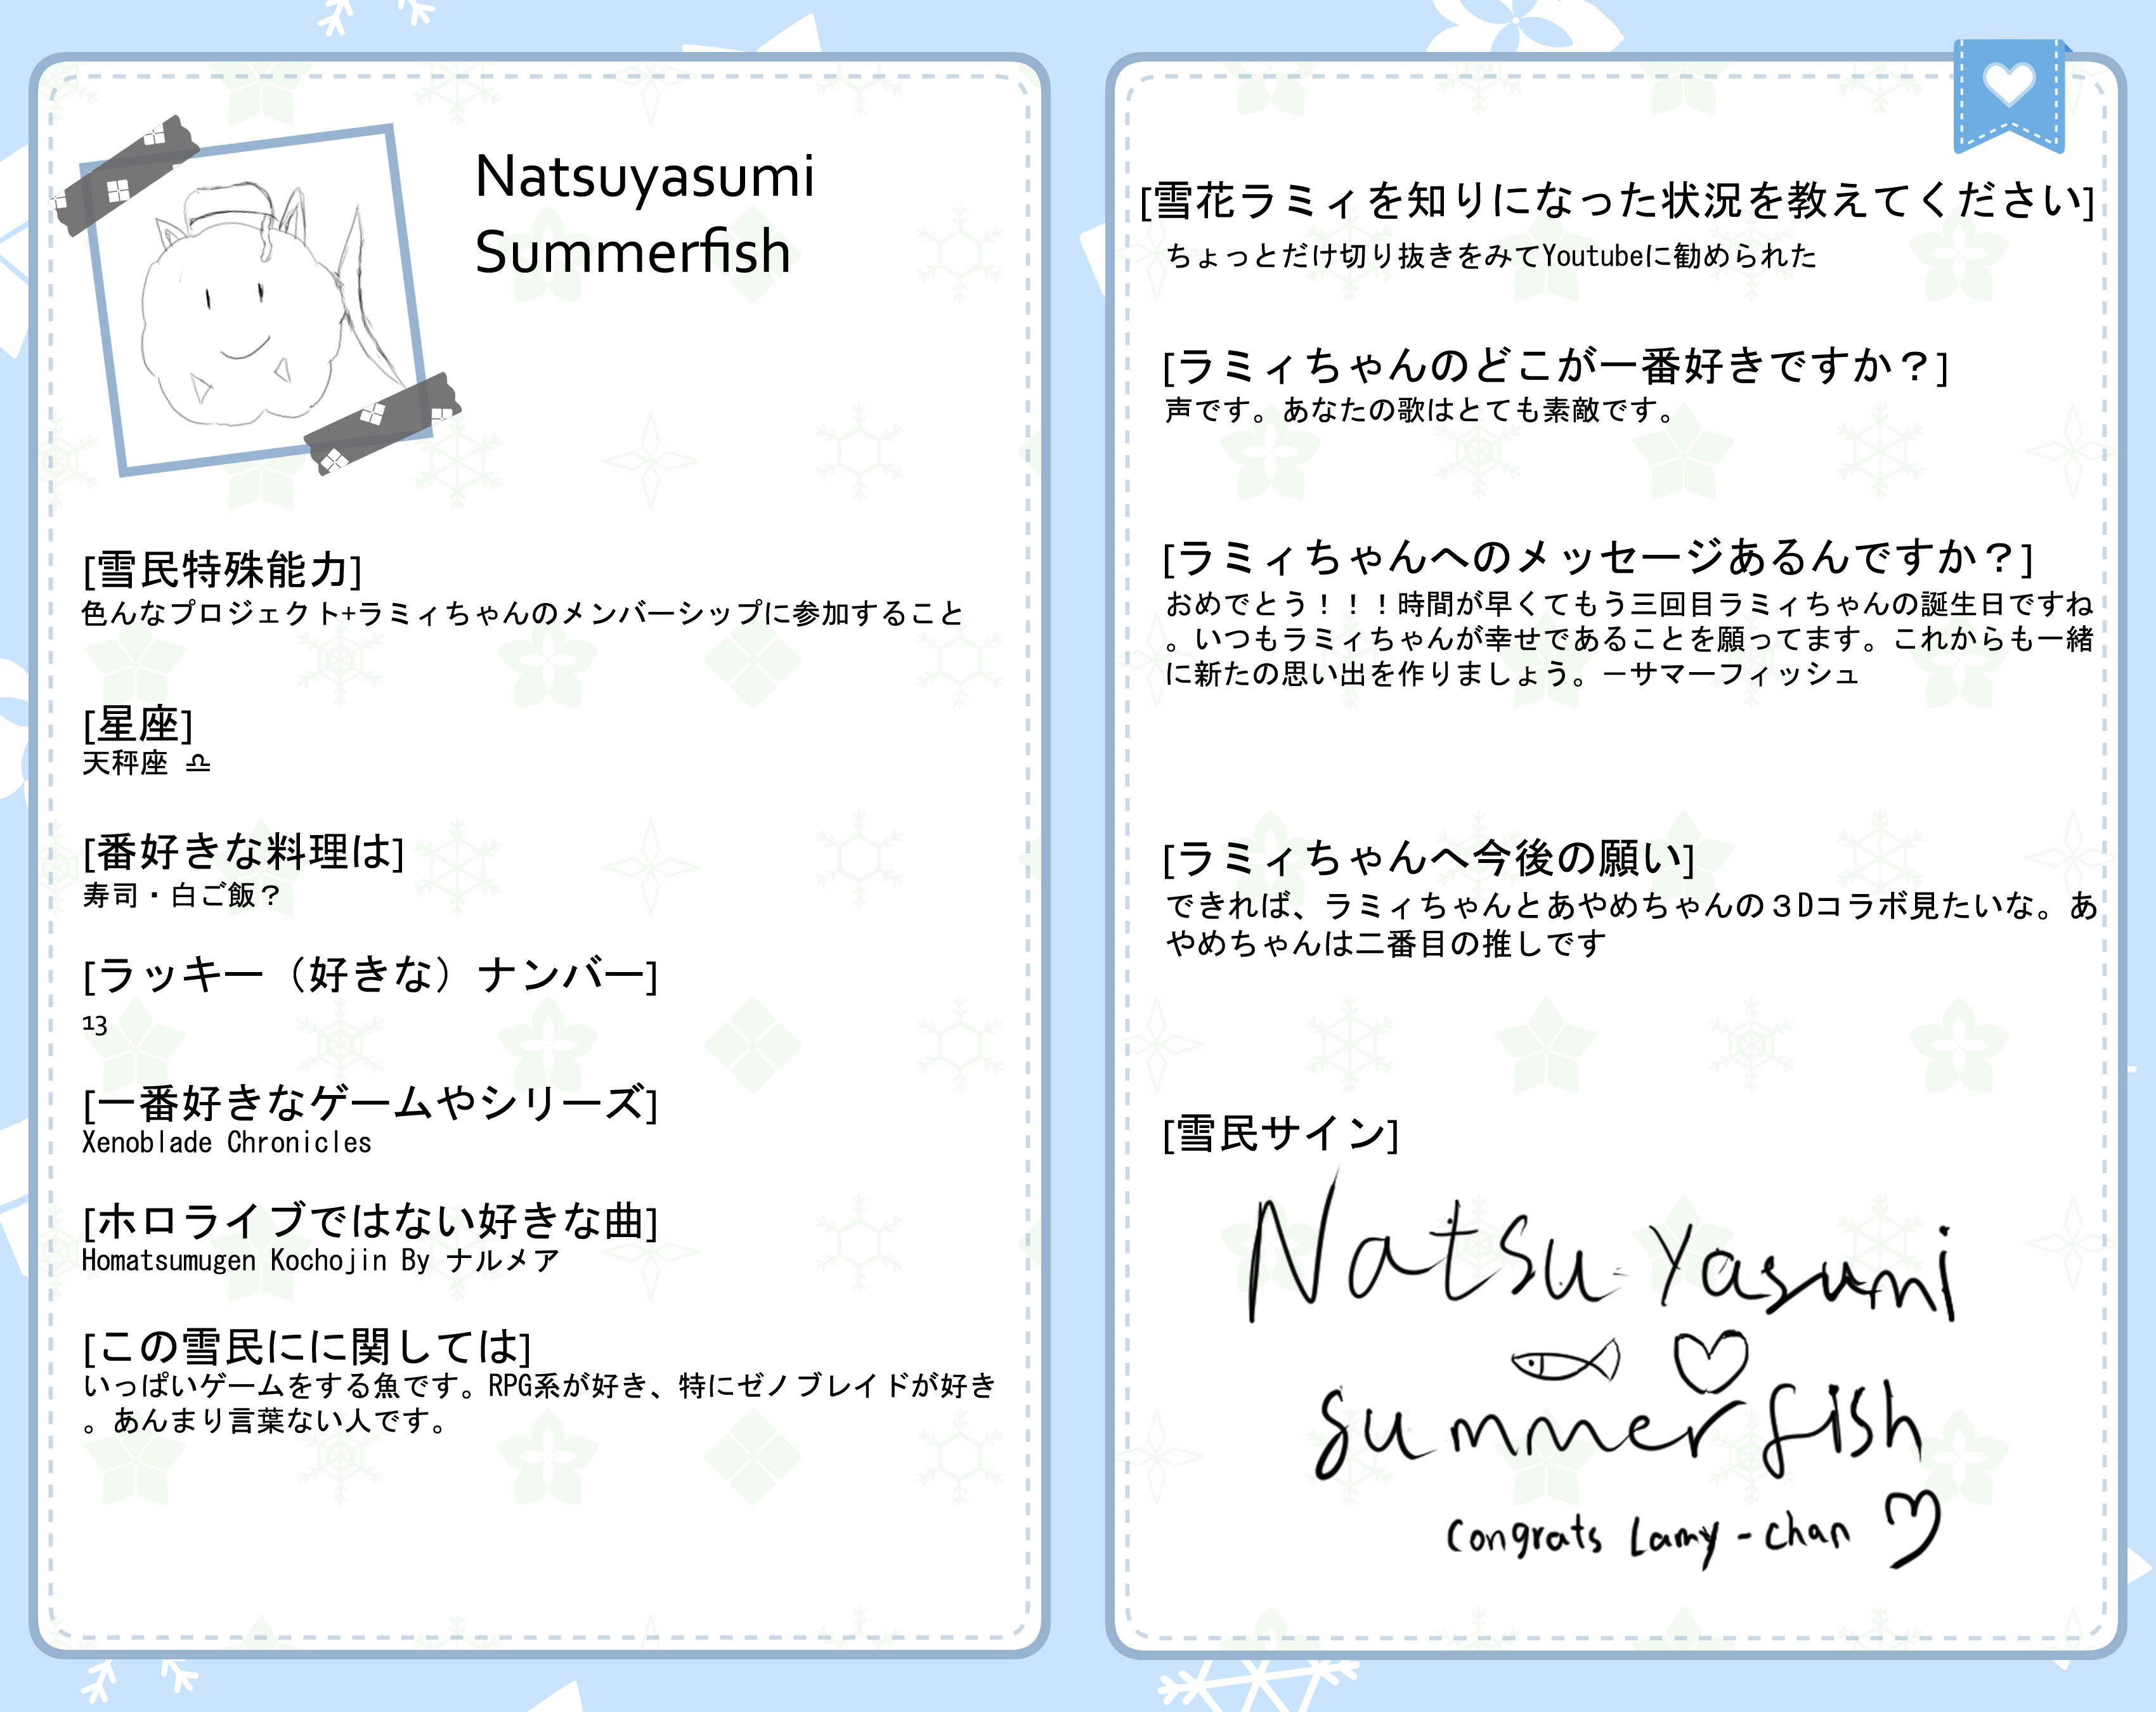 Natsuyasumi
Summerfish
[雪民特殊能力]
色んなプロジェクト+ラミィちゃんのメンバーシップに参加すること
[星座]
天秤座 ♎
[番好きな料理は]
寿司・白ご飯？
[ラッキー（好きな）ナンバー]
13
[一番好きなゲームやシリーズ]
Xenoblade Chronicles
[ホロライブではない好きな曲]
Homatsumugen Kochojin By ナルメア
[この雪民にに関しては]
いっぱいゲームをする魚です。RPG系が好き、特にゼノブレイドが好き
。あんまり言葉ない人です。
[雪花ラミィを知りになった状況を教えてください]
ちょっとだけ切り抜きをみてYoutubeに勧められた
[ラミィちゃんのどこが一番好きですか？]
声です。あなたの歌はとても素敵です。
[ラミィちゃんへのメッセージあるんですか？]
おめでとう！！！時間が早くてもう三回目ラミィちゃんの誕生日ですね
。いつもラミィちゃんが幸せであることを願ってます。これからも一緒
に新たの思い出を作りましょう。－サマーフィッシュ
[ラミィちゃんへ今後の願い]
できれば、ラミィちゃんとあやめちゃんの３Dコラボ見たいな。あ
やめちゃんは二番目の推しです
[雪民サイン]
Natsu-Yasumi
summerfish
Congrats Lamy-chan